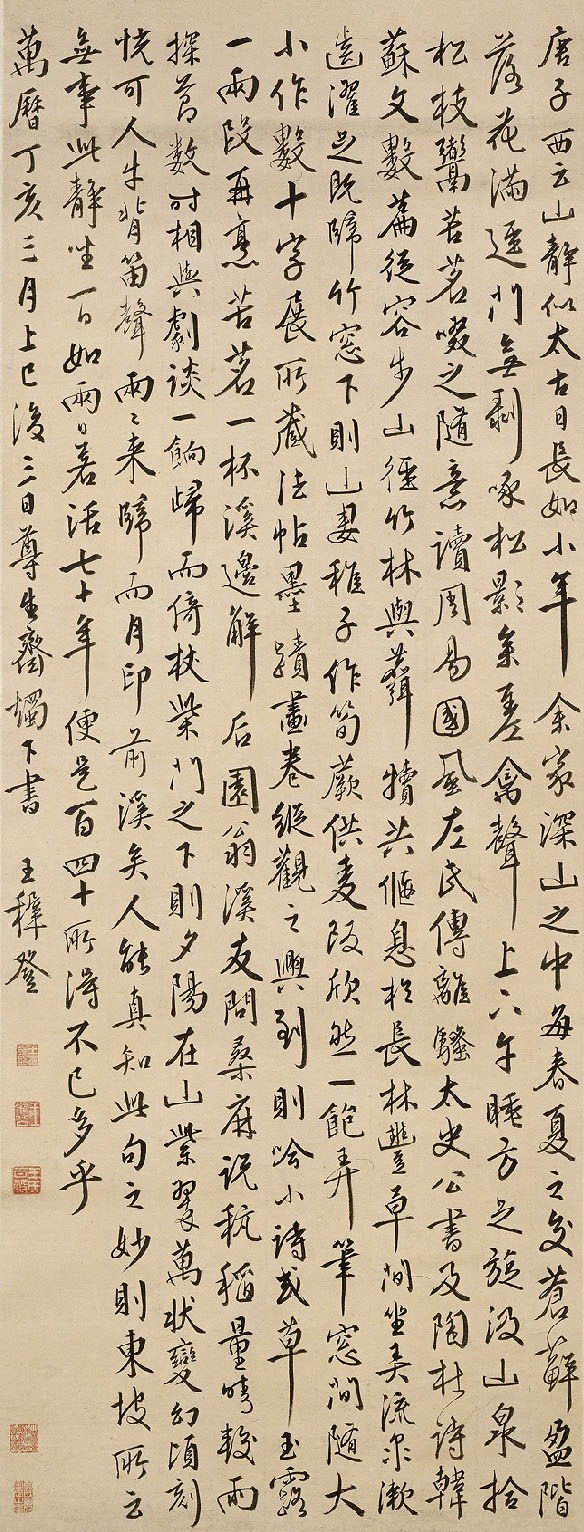 唐子西云山靜似太古日長如小年余家深山之中每春夏之交蒼蘚盈階
落花滿逕門無剝啄松影參差禽聲上下午睡方足旋汲山泉拾
松枝鬻苦茗啜之隨意讀周易國風左氏傳離騷太史公書及陶杜詩韓
蘇文數篇從容步山徑竹林與麛犢共偃息於長林豐草間坐弄流泉漱
齒濯足既歸竹窓下則山妻稚子作筍蕨供麦飯欣然一飽弄筆窓間隨大
小作數十字展所藏法帖墨蹟畫卷縱觀之興到則吟小詩或草玉露
一兩段再烹苦茗一杯溪邊解后園翁溪友問桑麻說秔稻量晴較雨
探節數時相與劇談一餉歸而倚杖柴門之下則夕陽在山紫翠萬狀變幻頃刻
恍可人牛背笛聲兩兩来歸而月印前溪矣人能真知此句之妙則東坡所云
無事此靜坐一日如兩日若活七十年便是百四十所得不已多乎
萬曆丁亥三月上巳後三日尊生齋燭下書 王穉登